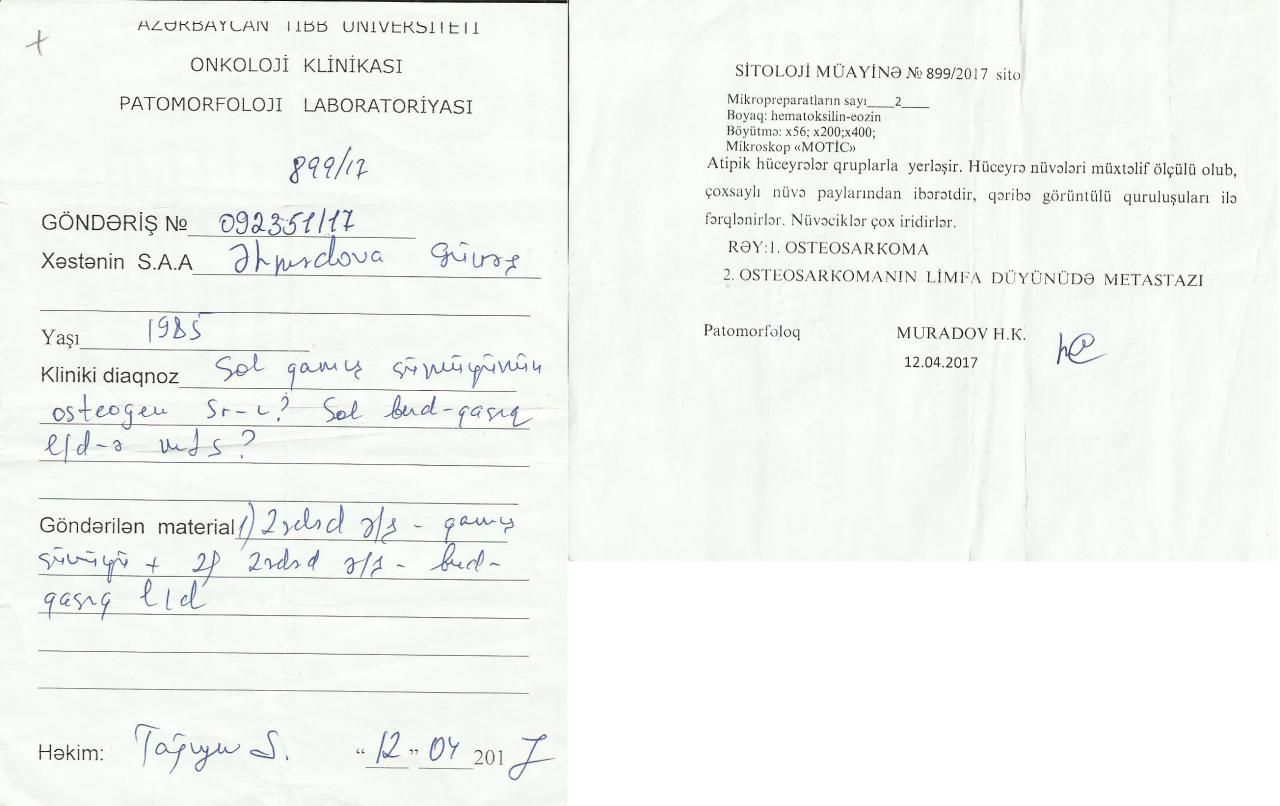 AZƏRBAYCAN TIBB UNİVERSİTETİ
ONKOLOJİ KLİNİKASI
PATOMORFOLOJI LABORATORİYASI
899/17
GÖNDƏRİŞ № 092351/17
Xəstənin S.A.A Əhmədova
Yaşı 1985
Kliniki diaqnoz Sol qamış sümüyünün
osteogen Sr-c? Sol bud-qasıq
l/d-ə mts?
Göndərilən material 1) 2 ədəd ə/ş - qamış
sümüyü + 2) 2 ədəd ə/ş - bud-
qasıq l/d
Həkim: S. “12” 04 2017
SİTOLOJİ MÜAYİNƏ № 899/2017 sito
Mikropreparatların sayı____2____
Boyaq: hematoksilin-eozin
Böyütmə: x56; x200;x400;
Mikroskop «MOTİC»
Atipik hüceyrələr qruplarla yerləşir. Hüceyrə nüvələri müxtəlif ölçülü olub,
çoxsaylı nüvə paylarından ibarətdir, qəribə görüntülü quruluşuları ilə
fərqlənirlər. Nüvəciklər çox iridirlər.
RƏY:1. OSTEOSARKOMA
2. OSTEOSARKOMANIN LİMFA DÜYÜNÜDƏ METASTAZI
Patomorfoloq MURADOV H.K.
12.04.2017